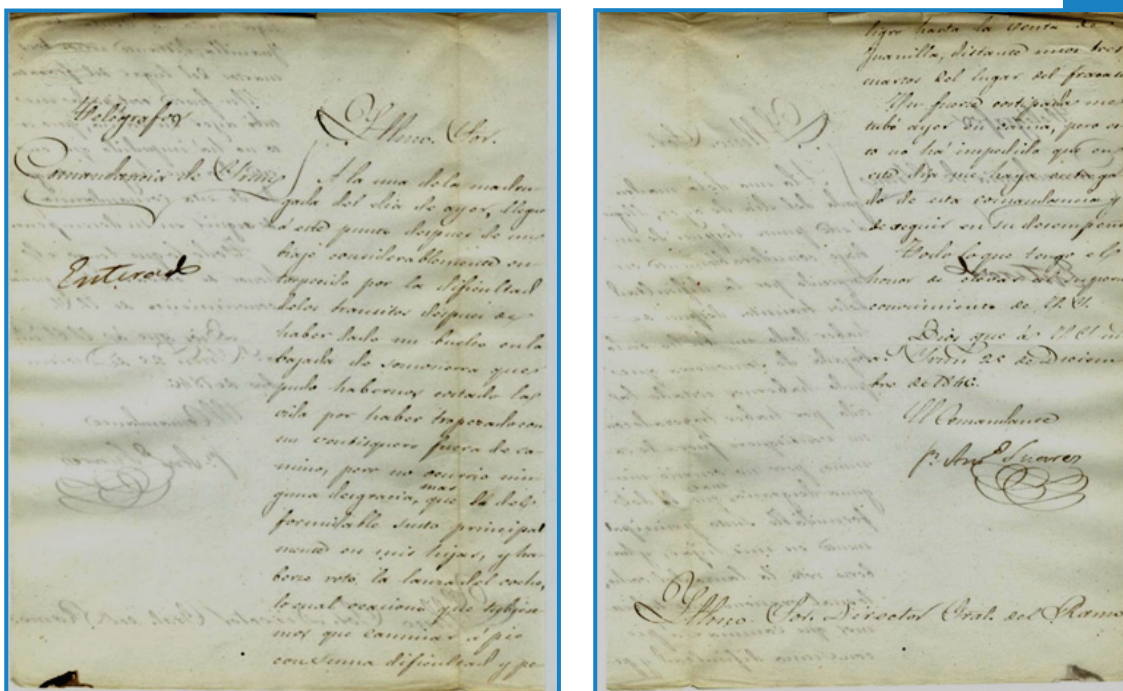 Telégrafos
Comandancia de
Enterado
Yllmo. Sor.
A la una de la madru-
gada del dia de ayer, llegué
á este punto despues de un
viaje considerablemente en
torpecido por la dificultad
delos transitos despues de
haber dado un buelco en la
bajada de Somosierra que
pudo habernos costado la
vida por haber tropezado con
un ventisquero fuera de ca-
mino, pero no ocurrio nin
guna desgracia, mas que la del
formidable susto principal
mente en mis hijas, y ha-
berse roto la lanza del coche,
lo cual ocasionó que tubiese
mos que caminar á pie
con suma dificultad y pe-
ligro hasta la venta de
Juanilla, distante unos tres
cuartos del lugar del fracaso
Un fuerte costipado me
tubó ayer en cama, pero es
to no há impedido que en
este dia me haya entrega
do de esta comandancia y
de seguir en su desempeño
Todo lo que tengo el
honor de elevar al superior
conocimiento de V. Y.
Dios gue á V. Y. m
a.s 22 de Diciem
bre de 1846.
El Comandante
Suarez
Yllmo. Sor. Director Gral. del Ramo